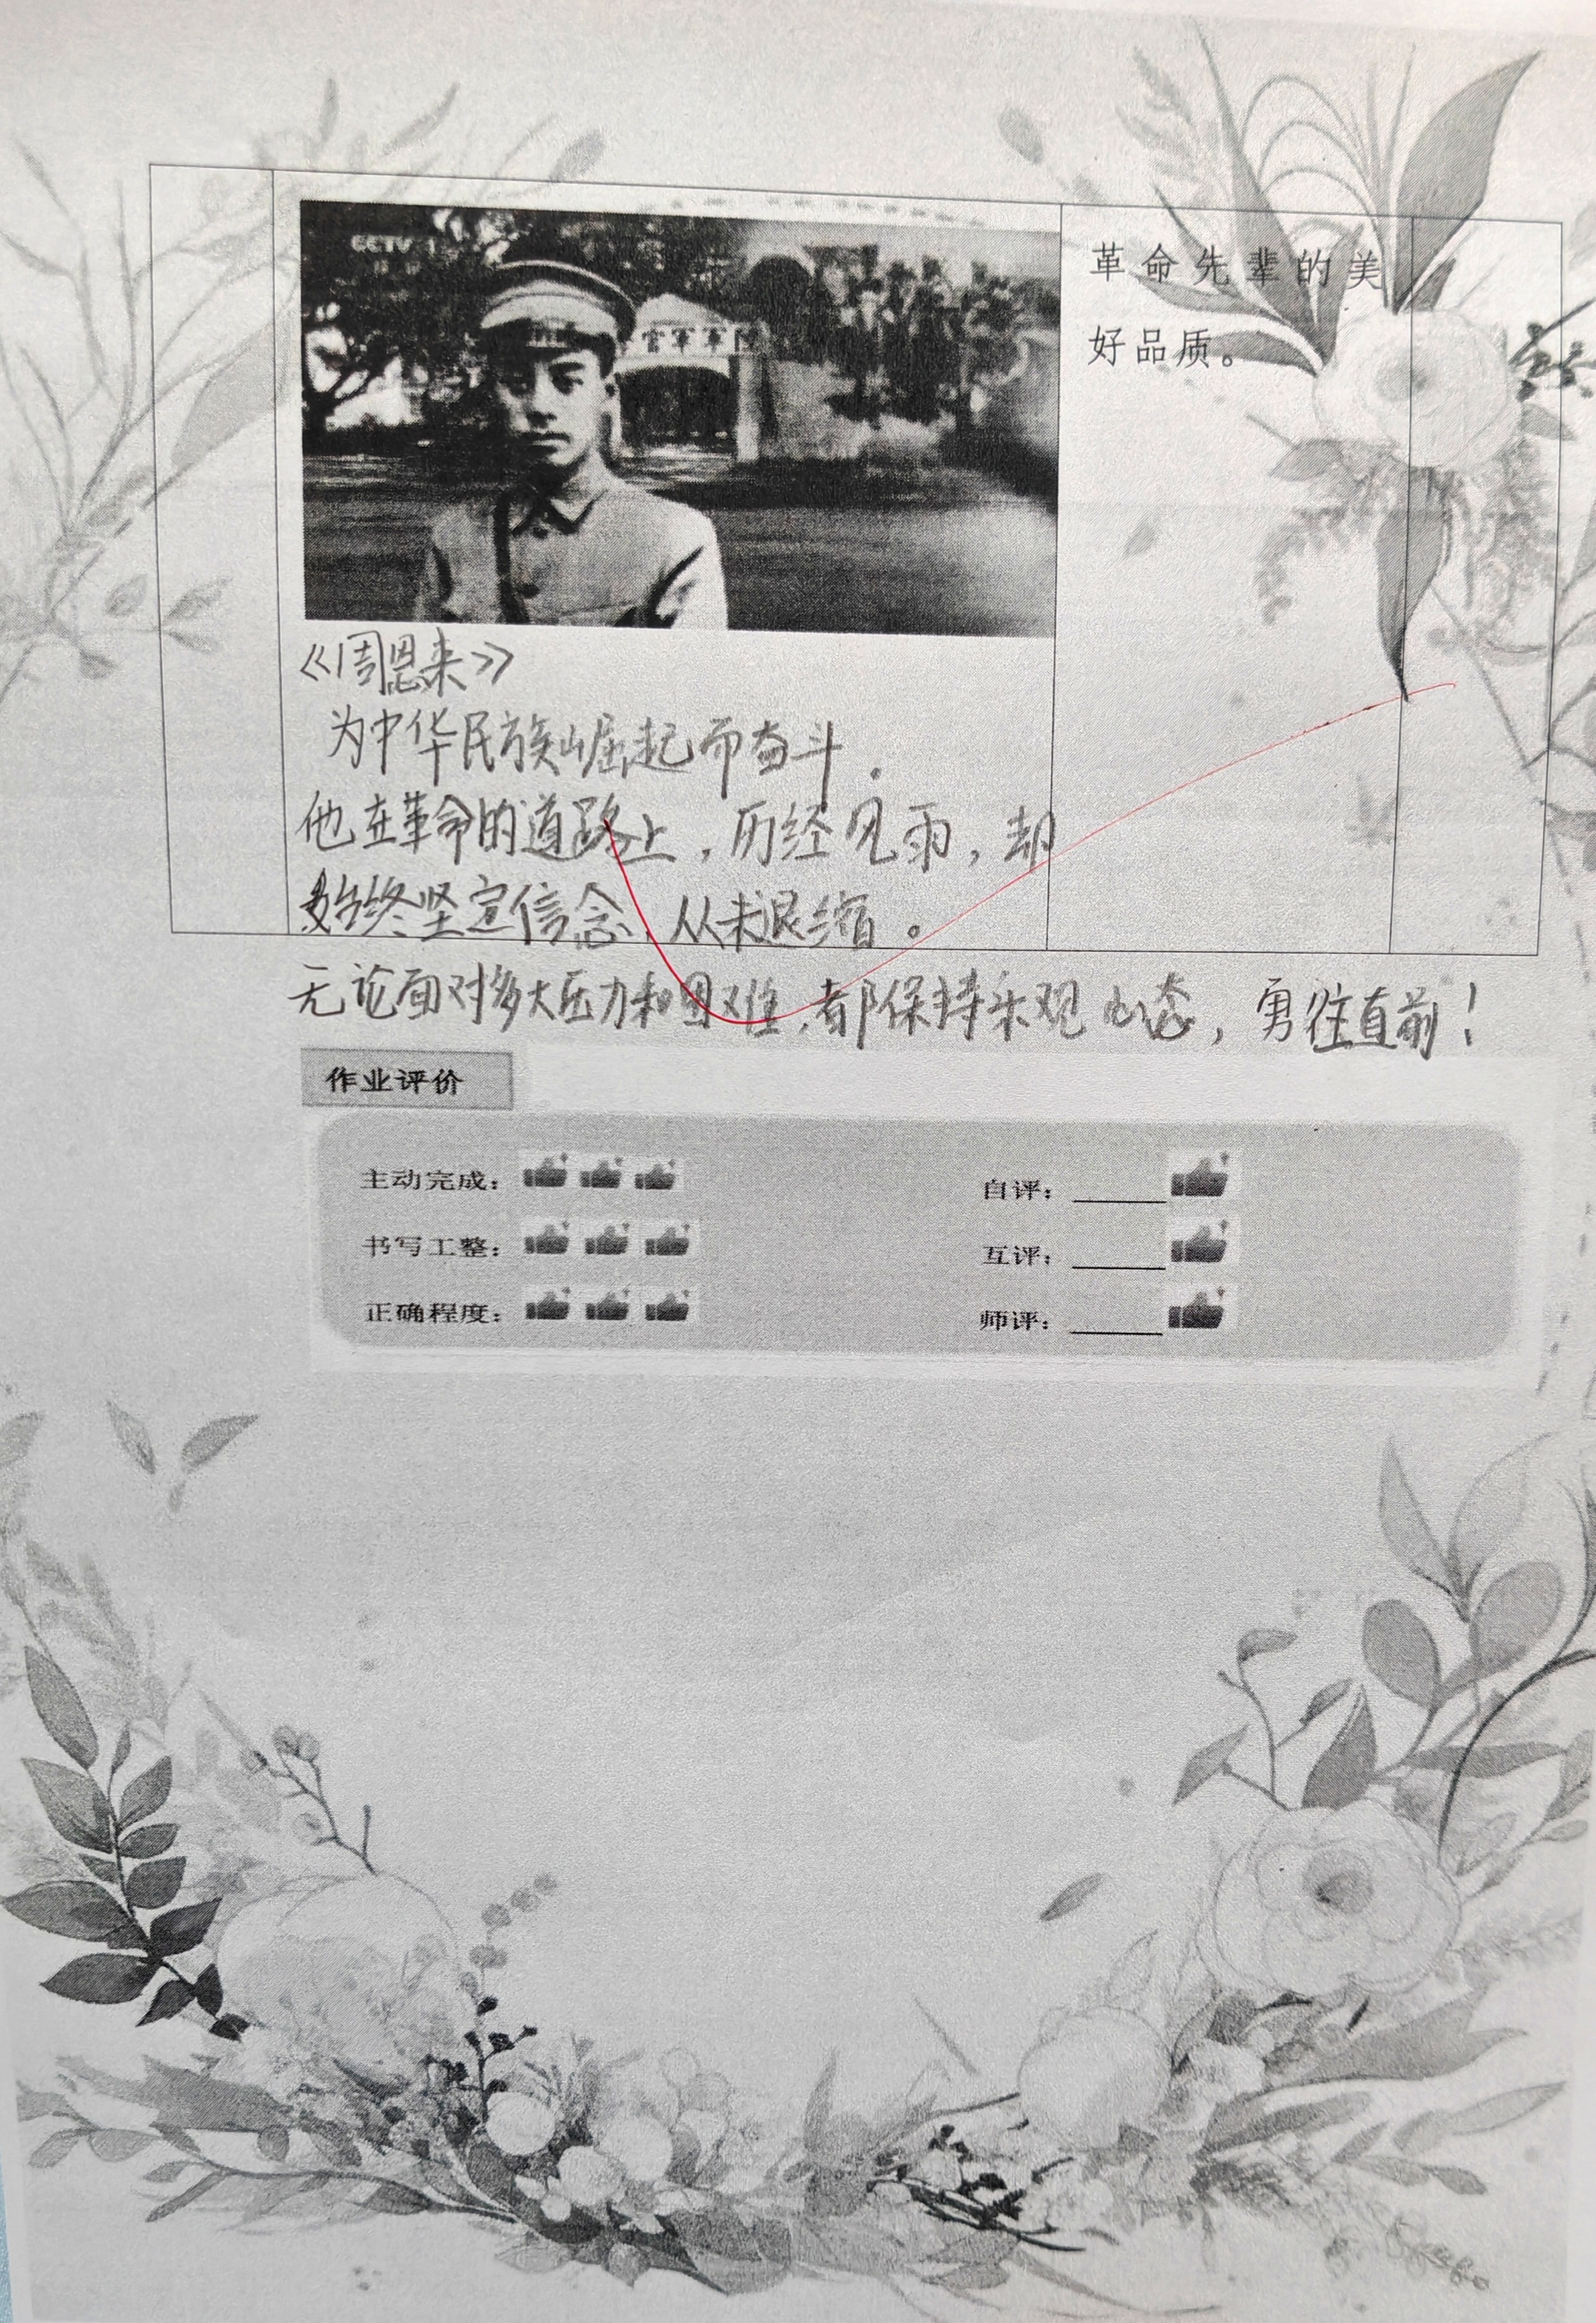 CCTV 1
官军军
革命先辈的美
好品质。
《周恩来》
为中华民族崛起而奋斗.
他在革命的道路上,历经风雨,却
始终坚定信念,从未退缩。
无论面对多大压力和困难,都保持乐观心态,勇往直前!
作业评价
主动完成:
自评:
书写工整:
互评:
正确程度:
师评: